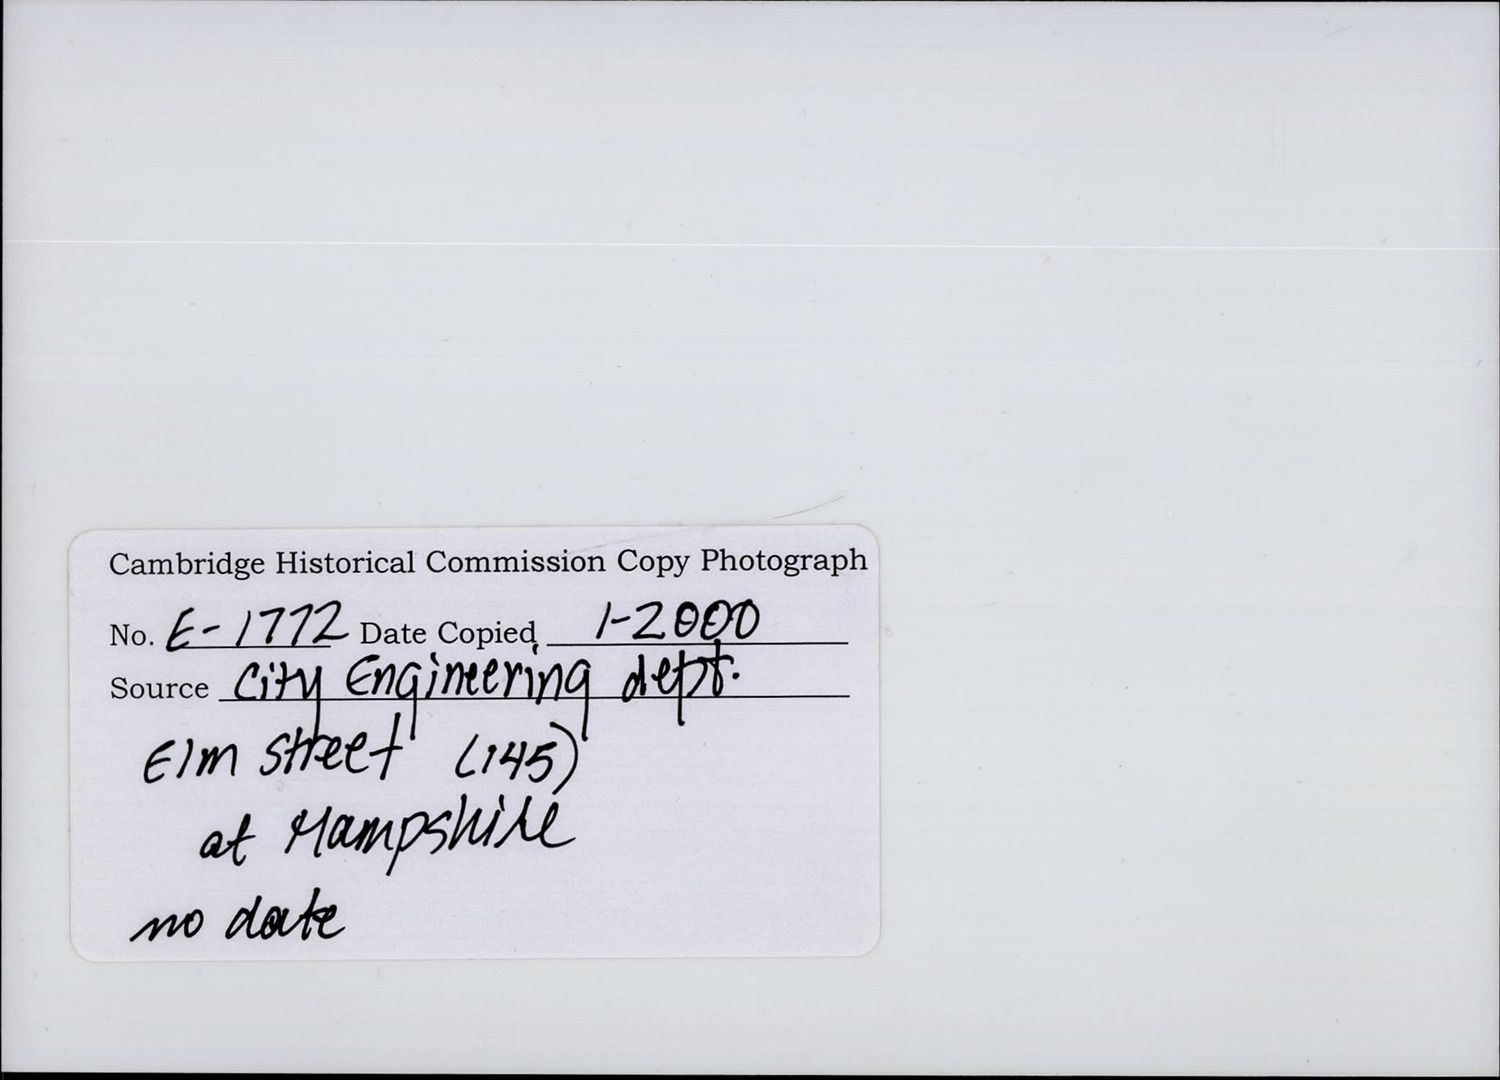 Cambridge Historical Commission Copy Photograph
No. E-1772 Date Copied 1-2000
Source City Engineering dept.
Elm street (145)
at Hampshire
no date